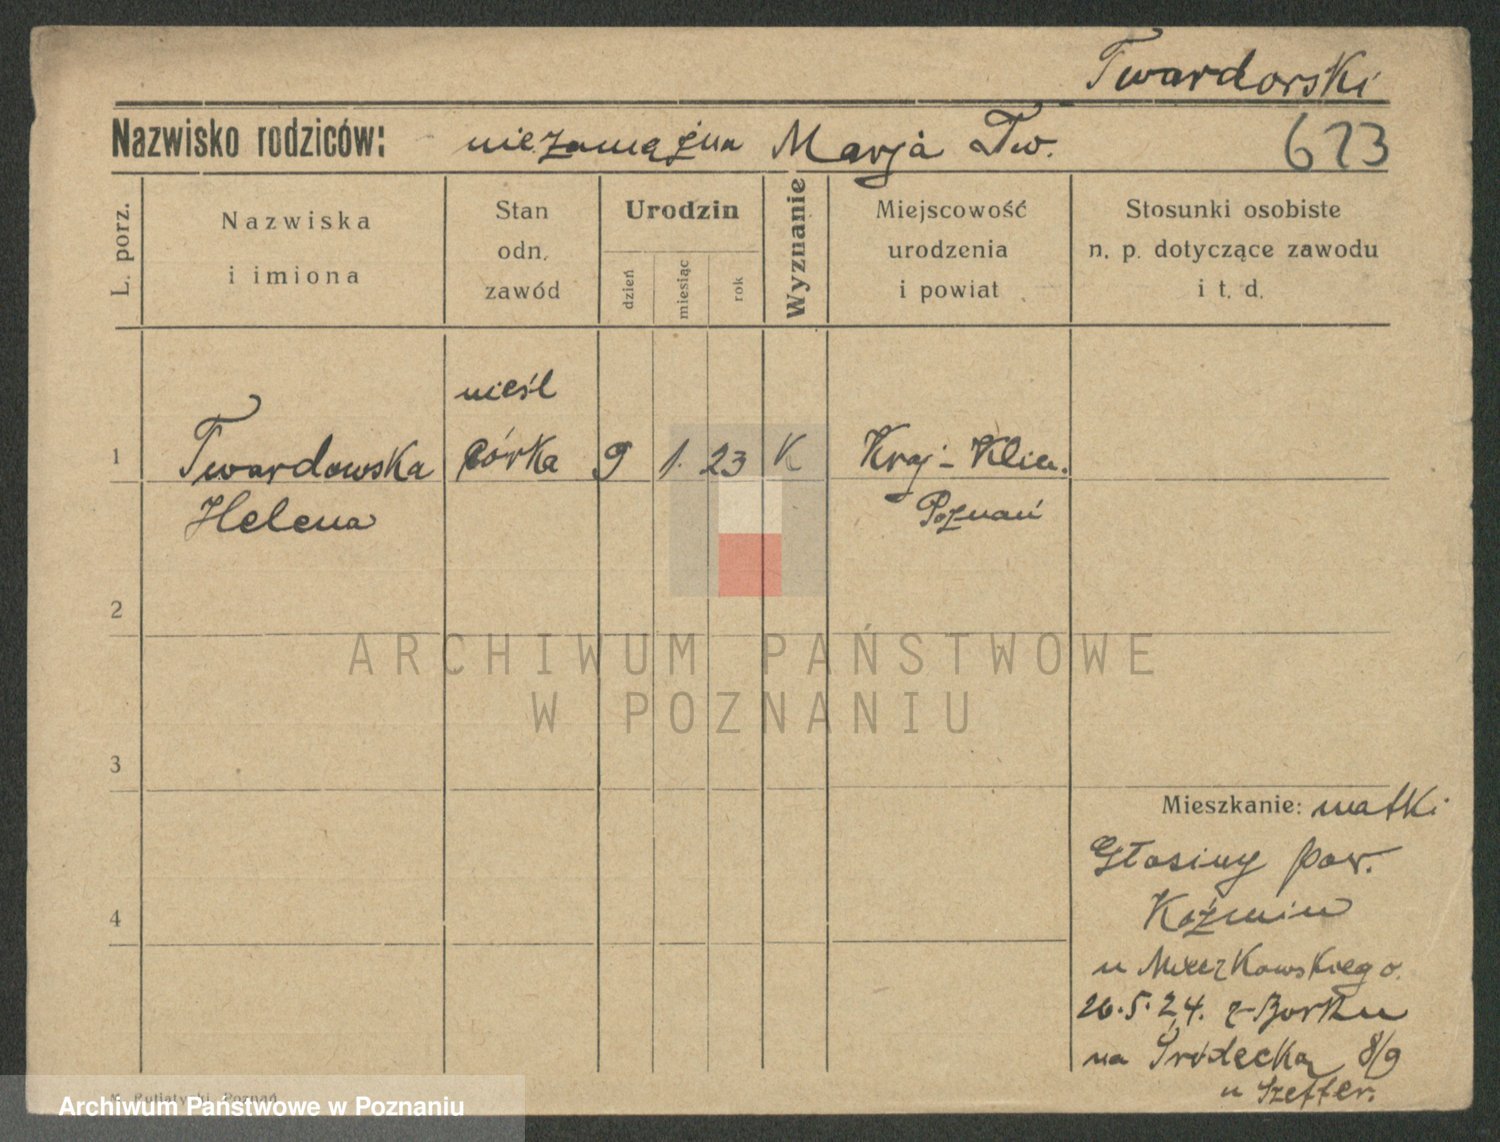 Twardorski
Nazwisko rodziców: niezamężna Marja Tw. 673
L. porz.
Nazwiska
i imiona
Stan
odn.
zawód
Urodzin
dzień
miesiąc
rok
Wyznanie
Miejscowość
urodzenia
i powiat
Stosunki osobiste
n. p. dotyczące zawodu
i t. d.
nieśl
1 Twardowska córka 9 1. 23 K Kraj-Klin.
Helena Poznań
2
ARCHIWUM PAŃSTWOWE
W POZNANIU
3
Mieszkanie: matki
Głosiny pow.
Koźmin
4
u Mieczkowskiego.
26.5.24. z Borku
na Śródecką 8/9
u Szeffer.
Poznań
Archiwum Państwowe w Poznaniu